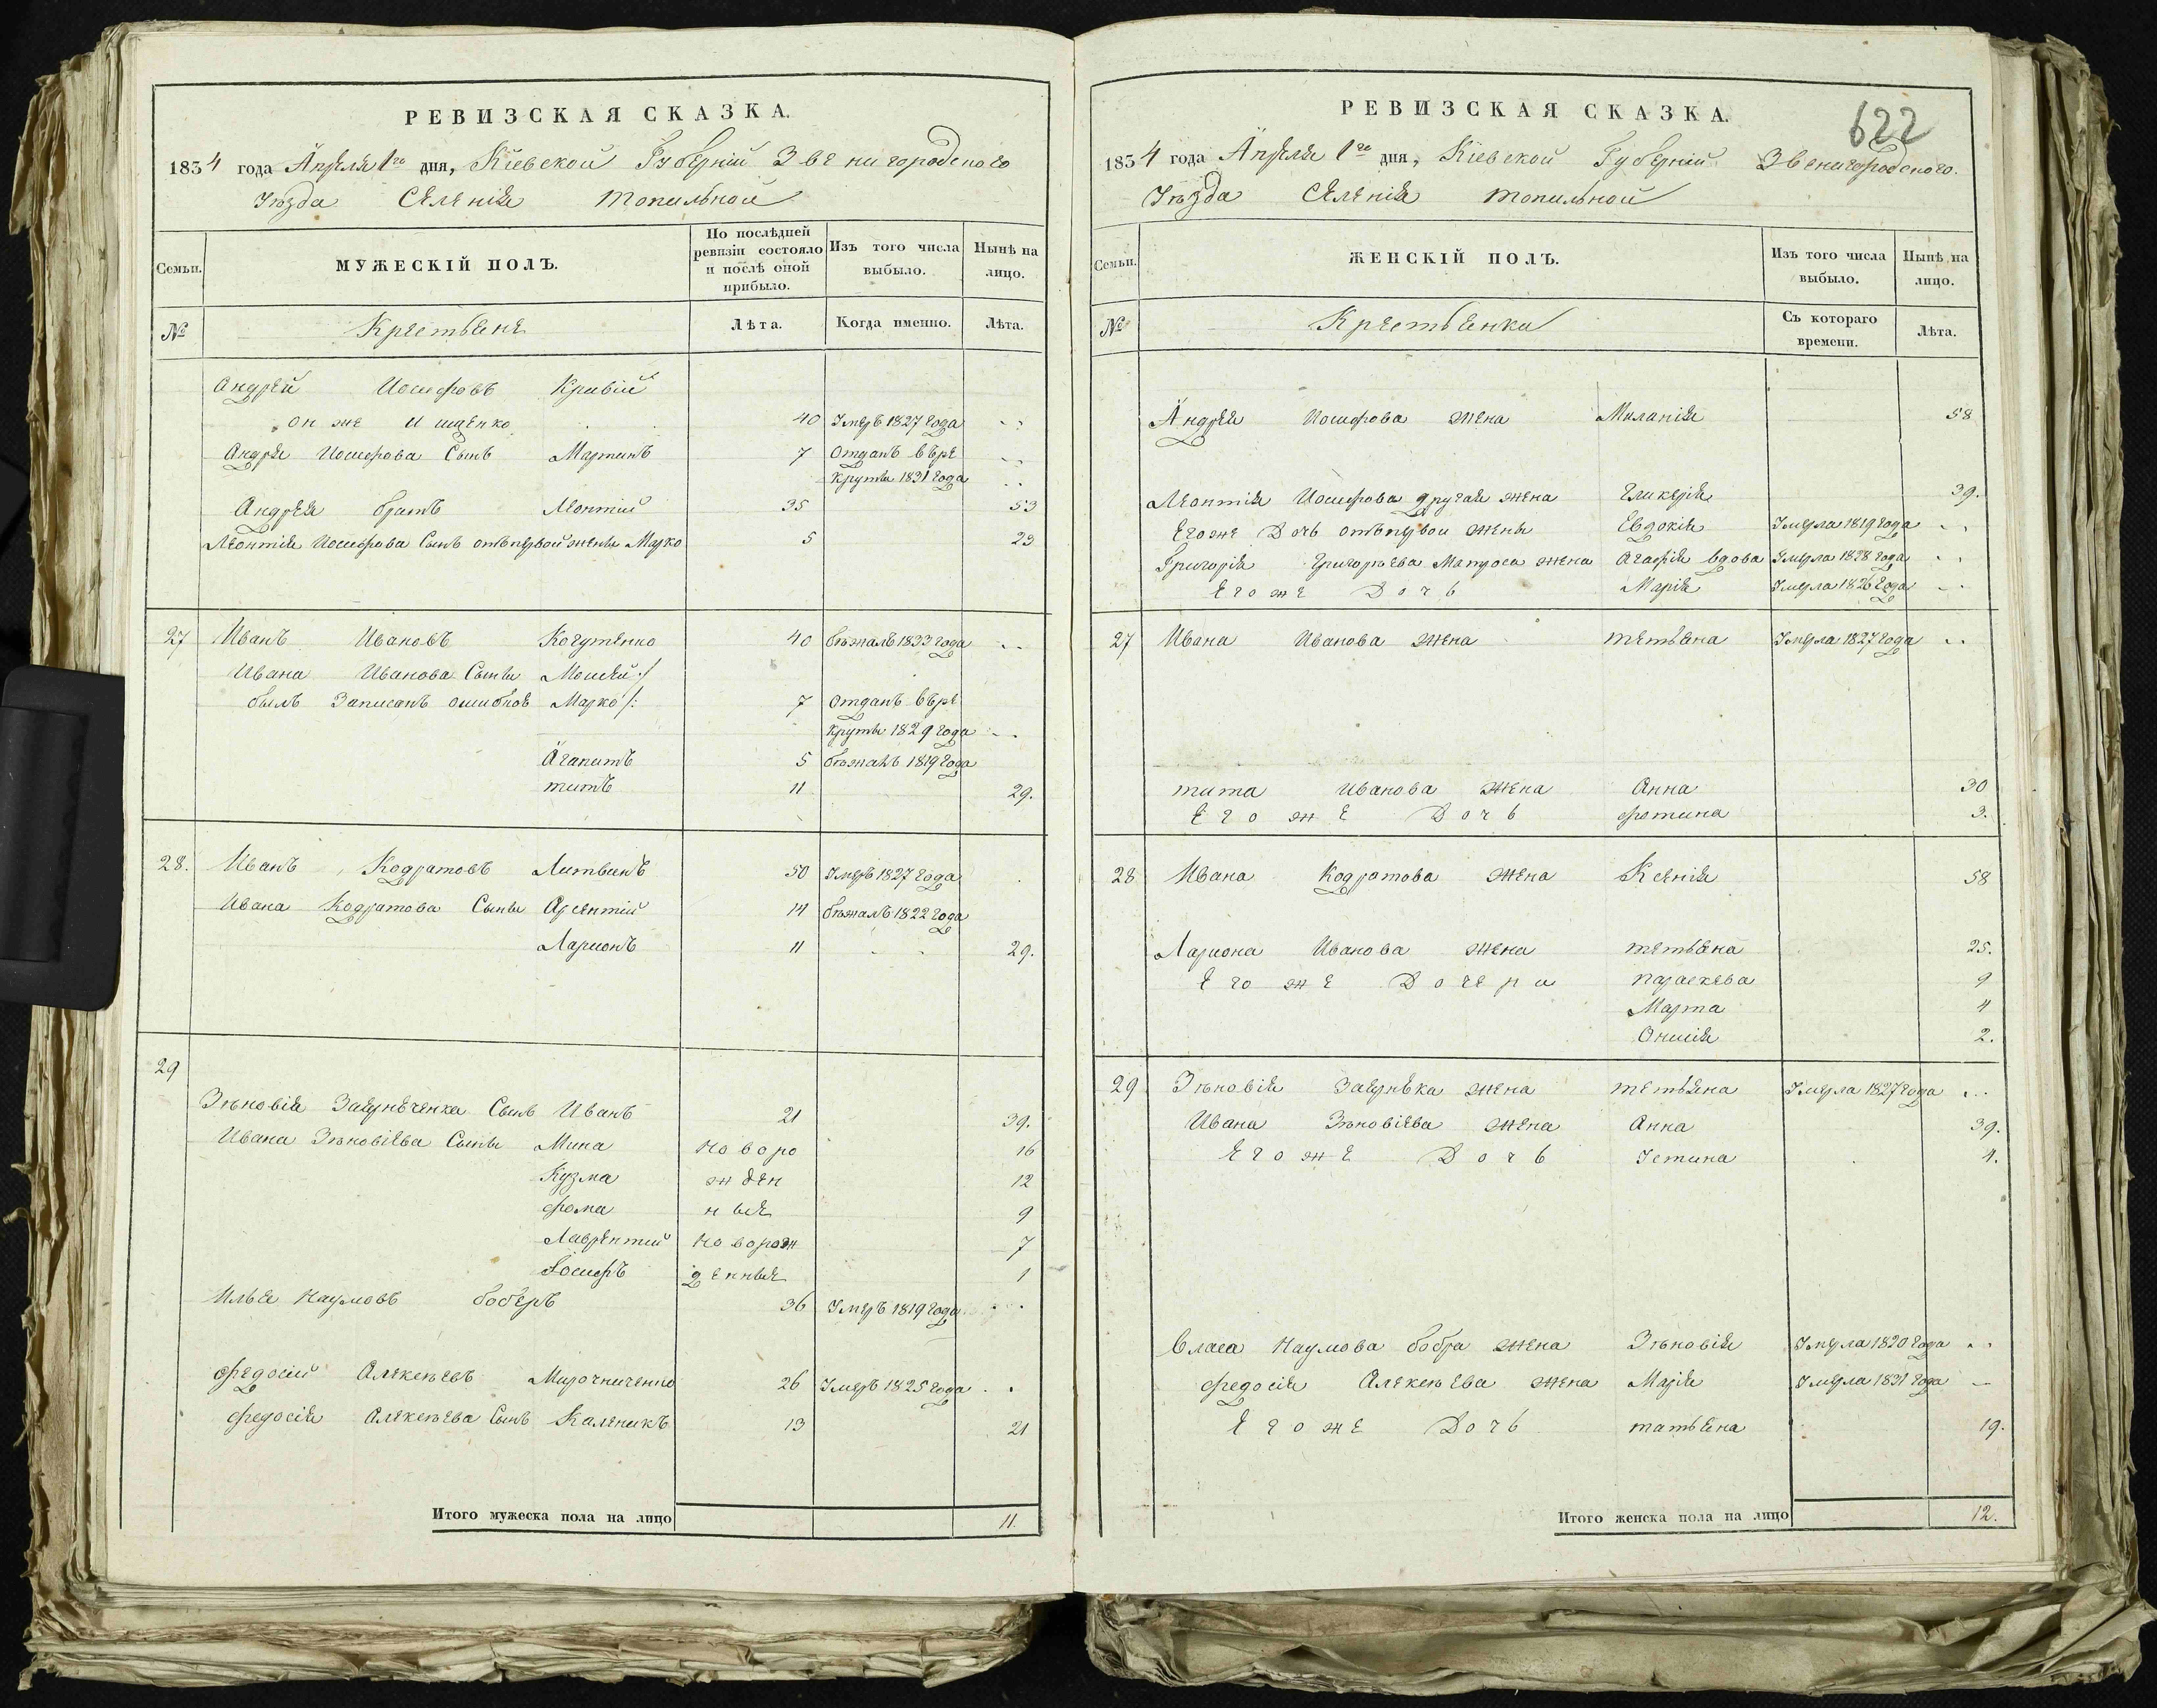 РЕВИЗСКАЯ СКАЗКА.
1834 года Апреля 1го дня, Кіевской Губерніи Звенигородского
Уезда Селенія Топильной
Семьи.
МУЖЕСКІЙ ПОЛЪ.
По послѣдней ревизіи состояло и послѣ оной прибыло.
Изъ того числа выбыло.
Нынѣ на лицо.
№
Крестьяне
Лѣта.
Когда именно.
Лѣта.
Андрей Иосифовъ Кривій
он же Ищенко 40 Умеръ 1827 года
Андрея Иосифова Сынъ Мартинъ 7 отданъ въ ре
круты 1831 года
Андрея братъ Леонтий 35 53
Леонтия Иосифова Сынъ отъ первой жены Марко 5 23
27 Иванъ Ивановъ Когутенко 40 бѣжалъ 1833 года
Ивана Иванова Сыны Мосей /
былъ Записанъ ошибков Марко /: 7 отданъ въ ре
круты 1829 года
Агапитъ 5 бѣжалъ 1819 года
титъ 11 29.
28. Иванъ Кодратовъ Литвинъ 50 Умеръ 1827 года
Ивана Кодратова Сыны Арсентий 14 бѣжалъ 1822 года
Ларионъ 11 29.
29
Зѣновія Сынъ Иванъ 21 39.
Ивана Зѣновіева Сыны Мина Новоро 16
Кузма жден 12
фома ные 9
Лаврентий Новорож 7
Іосифъ денные 1
Илья Наумовъ бобёръ 36 Умеръ 1819 года
федосій Алексѣевъ Мирочниченко 26 Умеръ 1825 года
федосія Алексѣева Сынъ Каленикъ 13 21
Итого мужеска пола на лицо 11.
РЕВИЗСКАЯ СКАЗКА.
622
1834 года Апреля 1го дня, Кіевской Губерніи Звенигородского.
Уѣзда Селенія Топильной
Семьи.
ЖЕНСКІЙ ПОЛЪ.
Изъ того числа выбыло.
Нынѣ на лицо.
№
Крестьянки
Съ котораго времени.
Лѣта.
Андрея Иосифова жена Миланія 58
Леонтия Иосифова другая жена Гликерія 39.
Его же Дочь отъ первой жены Евдокія Умерла 1819 года
Григорія Григорьева Матроса жена Агафія вдова Умерла 1828 года
Его же Дочь Марія Умерла 1826 года
27 Ивана Иванова жена тетьяна Умерла 1827 года
тита Иванова жена Анна 30
Его же Дочь фотина 3.
28 Ивана Кодратова жена Ксенія 58
Лариона Иванова жена тетьяна 25.
Его же Дочери параскева 9
Марта 4
Онисія 2.
29 Зѣновія жена тетьяна Умерла 1827 года
Ивана Зѣновіева жена Анна 39.
Его же Дочь Устина 4.
Власа Наумова бобра жена Зѣновія Умерла 1820 года
федосія Алексѣева жена Марія Умерла 1831 года
Его же Дочь татьяна 19.
Итого женска пола на лицо 12.